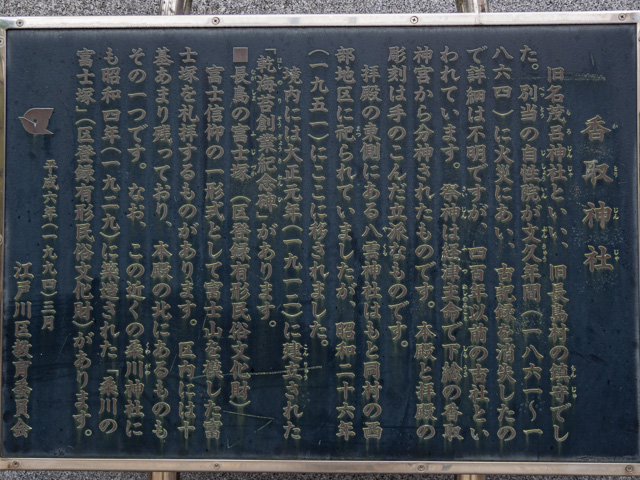 香取神社
旧名茂呂神社といい、旧長島村の鎮守でし
た。別当の自性院が文久年間（一八六一～一
八六四）に火災にあい、古記録を消失したの
で詳細は不明ですが、四百年以前の古社とい
われています。祭神は経津主命で下総の香取
神宮から分神されたものです。本殿と拝殿の
彫刻は手のこんだ立派なものです。
拝殿の東側にある八雲神社はもと同村の西
部地区に祀られていましたが、昭和二十六年
（一九五一）にここに移されました。
境内には大正元年（一九一二）に建立された
「乾海苔創業記念碑」があります。
■長島の富士塚（区登録有形民俗文化財）
富士信仰の一形式として富士山を模した富
士塚を礼拝するものがあります。区内には十
基あまり残っており、本殿の北にあるものも
その一つです。なお、この近くの桑川神社に
も昭和四年（一九二九）に築造された「桑川の
富士塚」（区登録有形民俗文化財）があります。
平成六年（一九九四）三月
江戸川区教育委員会